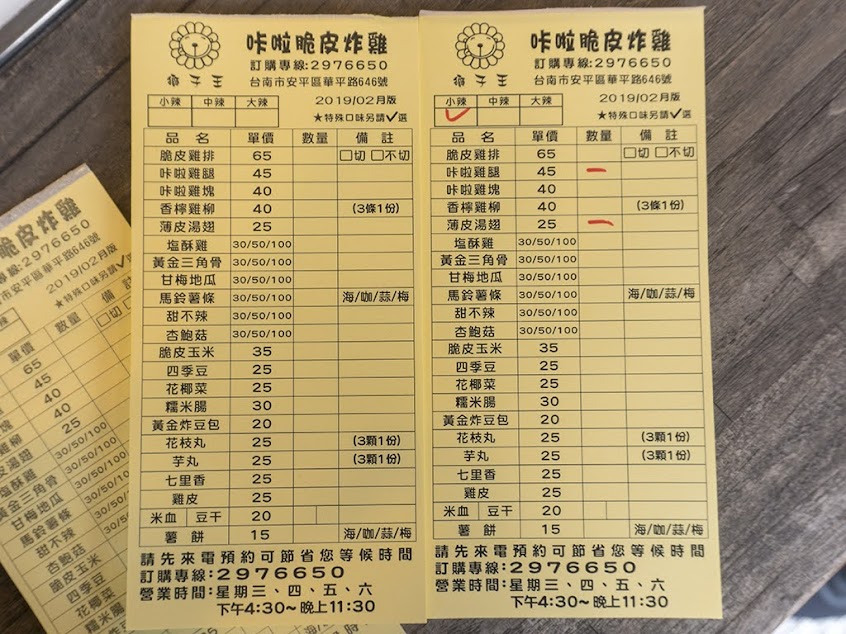 獅子王
咔啦脆皮炸雞
訂購專線:2976650
台南市安平區華平路646號
小辣 中辣 大辣
2019/02月版
★特殊口味另請✓選
品名 單價 數量 備註
脆皮雞排 65 □切 □不切
咔啦雞腿 45
咔啦雞塊 40
香檸雞柳 40 (3條1份)
薄皮湯翅 25
塩酥雞 30/50/100
黃金三角骨 30/50/100
甘梅地瓜 30/50/100
馬鈴薯條 30/50/100 海/咖/蒜/梅
甜不辣 30/50/100
杏鮑菇 30/50/100
脆皮玉米 35
四季豆 25
花椰菜 25
糯米腸 30
黃金炸豆包 20
花枝丸 25 (3顆1份)
芋丸 25 (3顆1份)
七里香 25
雞皮 25
米血 豆干 20
薯餅 15 海/咖/蒜/梅
請先來電預約可節省您等候時間
訂購專線:2976650
營業時間:星期三、四、五、六
下午4:30~晚上11:30
獅子王
咔啦脆皮炸雞
訂購專線:2976650
台南市安平區華平路646號
小辣 中辣 大辣
2019/02月版
★特殊口味另請✓選
品名 單價 數量 備註
脆皮雞排 65 □切 □不切
咔啦雞腿 45 一
咔啦雞塊 40
香檸雞柳 40 (3條1份)
薄皮湯翅 25 一
塩酥雞 30/50/100
黃金三角骨 30/50/100
甘梅地瓜 30/50/100
馬鈴薯條 30/50/100 海/咖/蒜/梅
甜不辣 30/50/100
杏鮑菇 30/50/100
脆皮玉米 35
四季豆 25
花椰菜 25
糯米腸 30
黃金炸豆包 20
花枝丸 25 (3顆1份)
芋丸 25 (3顆1份)
七里香 25
雞皮 25
米血 豆干 20
薯餅 15 海/咖/蒜/梅
請先來電預約可節省您等候時間
訂購專線:2976650
營業時間:星期三、四、五、六
下午4:30~晚上11:30
脆皮炸雞
專線:2976650
市安平區華平路646號
2019/02月版
★特殊口味另請✓選
單價 數量 備註
65 □切
45
40
雞柳 40
湯翅 25
塩酥雞 30/50/100
黃金三角骨 30/50/100
甘梅地瓜 30/50/100
馬鈴薯條 30/50
甜不辣
杏鮑菇
脆皮玉米
四季豆
花椰菜